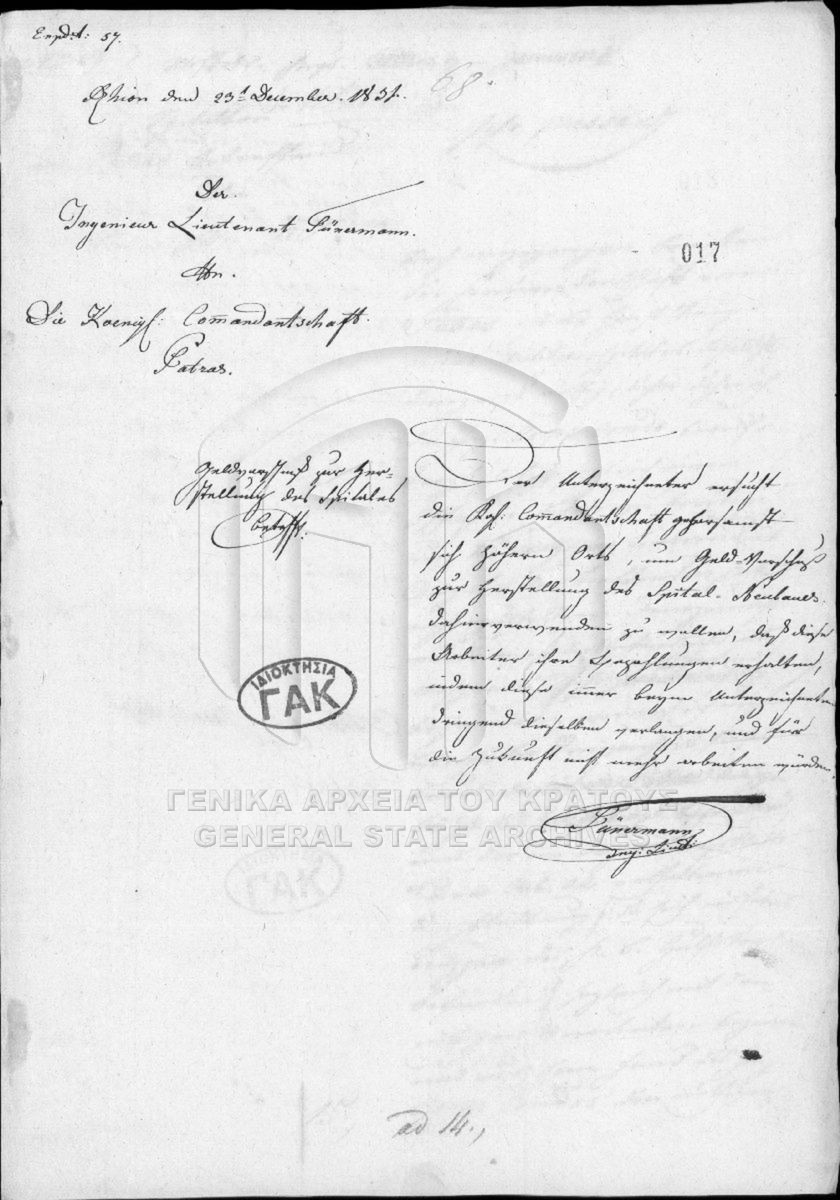 Expdt: 57.
68.
Rhion den 23t December. 1837.
Der.
Ingenieur Lieutenant Fünermann.
An.
Die Koenigl: Commandantschaft.
Patras.
017
Geldvorschuß zur Her-
stellung des Spitales
betrff:
Der Unterzeichneter ersucht
die Kgl: Commandantschaft gehorsamst
sich höhern Orts, um Geld-Vorschuß
zur Herstellung des Spital-Neubaues
dahier verwenden zu wollen, daß diese
Arbeiter ihre Bezahlungen erhalten,
indem diese immer beym Unterzeichneten
dringend dieselben verlangen, und für
die Zukunft nicht mehr arbeiten würden.
Fünermann
Ing: Lieut:
ΙΔΙΟΚΤΗΣΙΑ
ΓΑΚ
ΓΕΝΙΚΑ ΑΡΧΕΙΑ ΤΟΥ ΚΡΑΤΟΥΣ
GENERAL STATE ARCHIVES
ΓΑΚ
ad 14.,